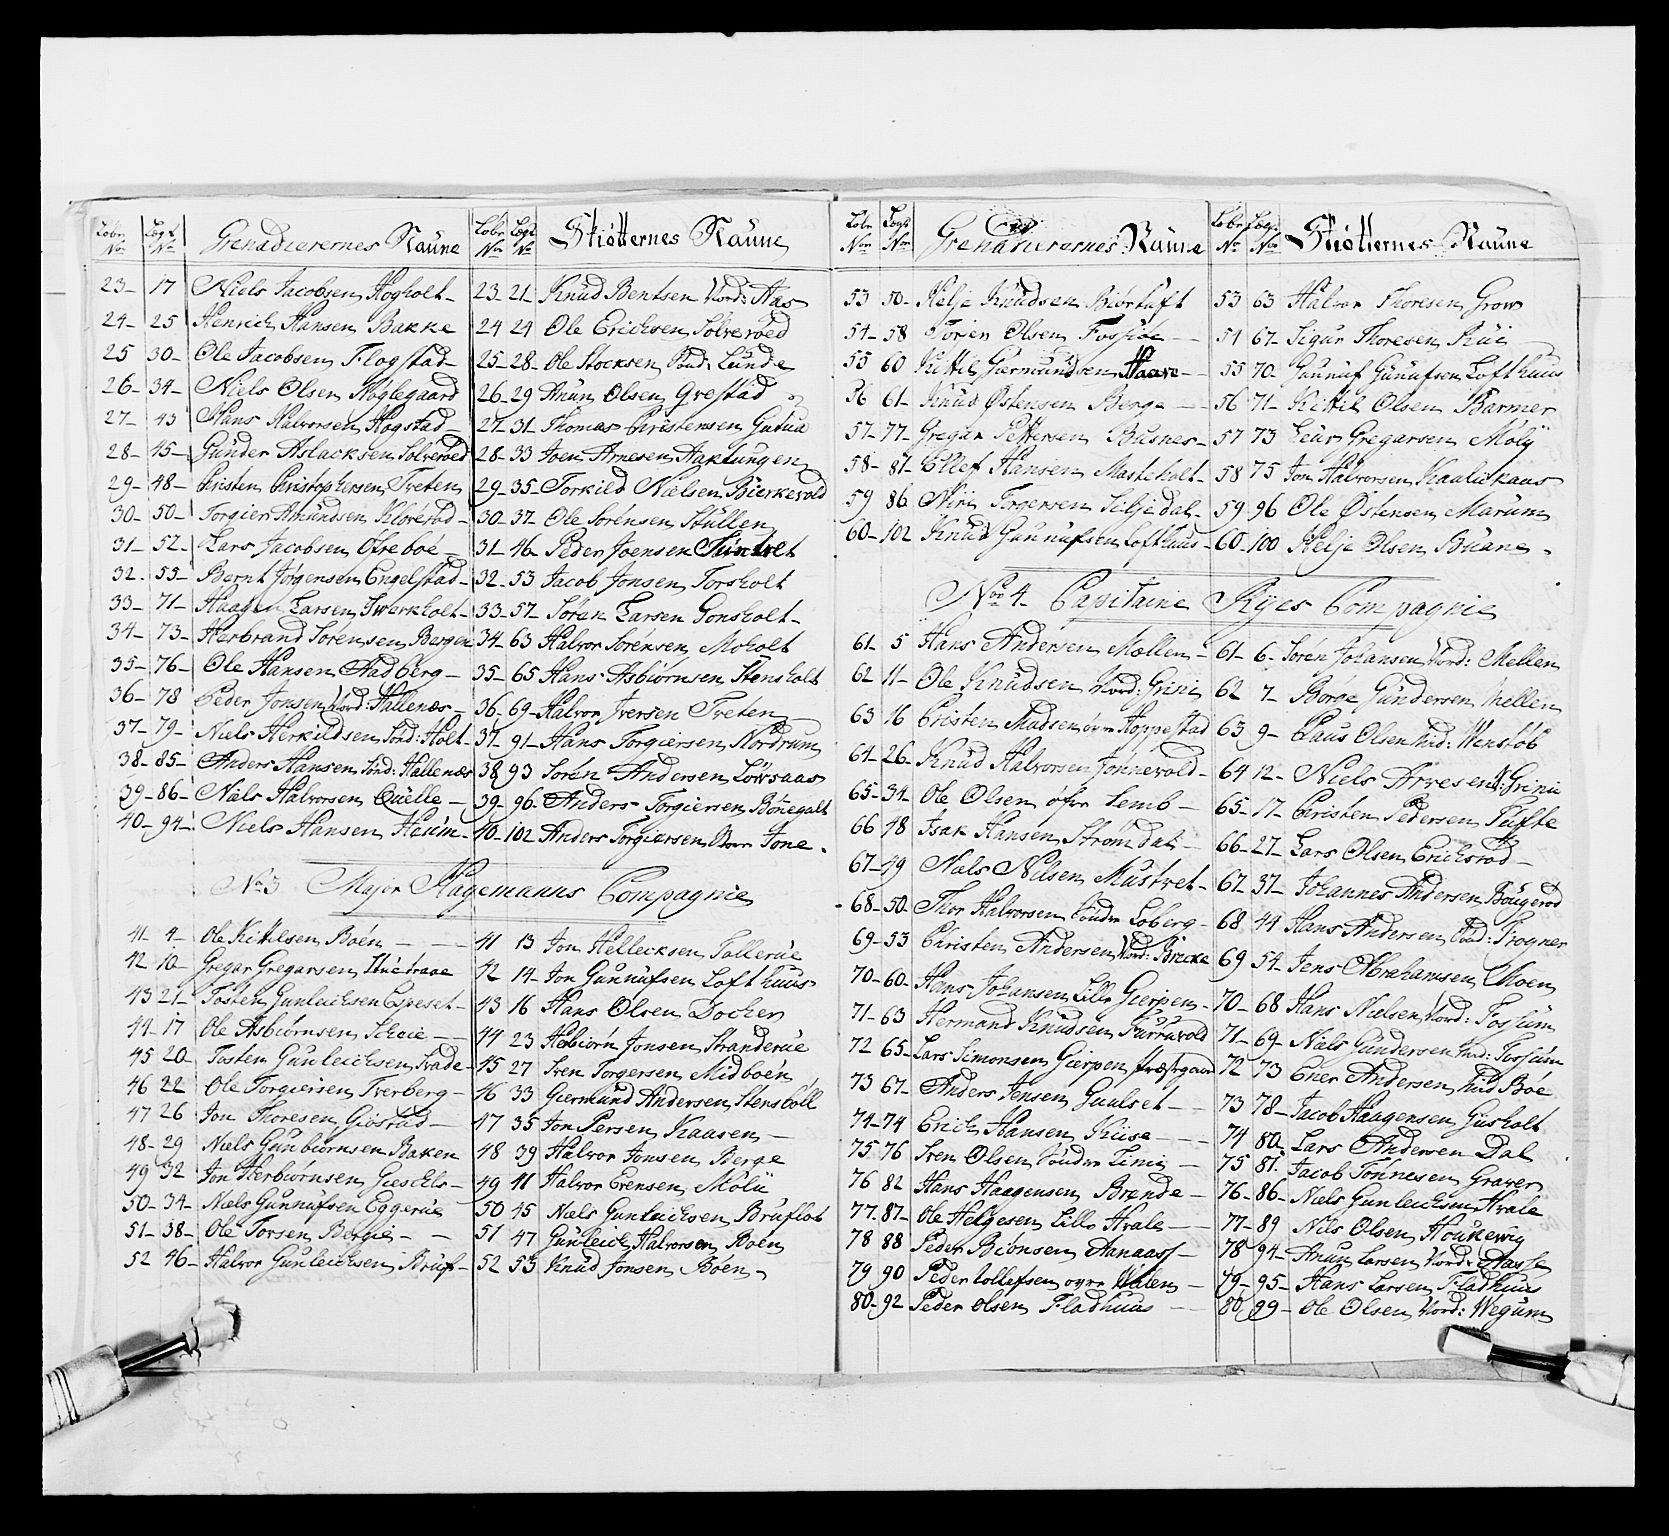 Lobr No Legd No Grenadierernes Naune Lobr No Legd No Skiötternes Naune
23 17 Niels Jacobsen Hogholt 23 21 Knud Bentsen Nord: Aas
24 25 Henrich Hansen Bakke 24 24 Ole Erichsen Solveröed
25 30 Ole Jacobsen Flogstad 25 28 Ole Stocksen Sönd: Lunde
26 34 Niels Olsen Röglegaard 26 29 Anun Olsen Grestad
27 43 Hans Halvorsen Hogstad 27 31 Thomas Christensen
28 45 Gunder Aslacksen Solveröed 28 33 Joen Arnesen Aaklungen
29 48 Christen Christophersen Treten 29 35 Torkild Nielsen Bierkevold
30 50 Torgier Amundsen 30 37 Ole Sörensen Stullen
31 52 Lars Jacobsen Ofreboe 31 46 Peder Joensen
32 55 Bernt Jörgensen Engelstad 32 53 Jacob Jonsen Torsholt
33 71 Haagen Larsen Swarkholt 33 57 Sören Larsen Gonsholt
34 73 Herbrand Sörensen Bergen 34 63 Halvor Sörensen Moholt
35 76 Ole Hansen Aadberg 35 65 Hans Asbiörnsen Stensholt
36 78 Peder Jonsen Nord: Hallenæs 36 69 Halvor Iversen Treten
37 79 Niels Herkildsen Sönd: Holt 37 91 Hans Torgiersen Nordrum
38 85 Anders Hansen Sönd: Hallenæs 38 93 Sören Andersen Löwaas
39 86 Niels Halvorsen Quelle 39 96 Anders Torgiersen Bönegalt
40 94 Niels Hansen Haum 40 102 Anders Torgiersen Tone
No 3 Major Hagemanns Compagnie
41 4 Ole Kittelsen Boen 41 13 Jon Hellecksen Tallerüe
42 10 Gregar Gregarsen 42 14 Jon Gunnufsen Lofthuus
43 21 Tosten Gunleichsen Espeset 43 16 Hans Olsen Docker
44 17 Ole Asbiörnsen 44 23 Asbiörn Jonsen Stranderüe
45 20 Tosten Gunleichsen 45 27 Sven Torgersen Midboen
46 22 Ole Torgiersen Tverberg 46 33 Giermund Andersen Stensböll
47 26 Jon Thoresen Giostad 47 35 Jon Persen Kaasen
48 29 Niels Gunbiörnsen Baken 48 39 Halvor Jonsen Berge
49 32 Jon Herbiörnsen 49 41 Halvor Evensen Molü
50 34 Niels Gunnufsen Eggerüe 50 45 Niels Gunleichsen Bruflot
51 38 Ole Torsen Bergie 51 47 Gunleich Halvorsen Boen
52 46 Halvor Gunleichsen Bruf 52 53 Knud Jonsen Boen
Lobr No Legd No Grenadierernes Naune Lobr No Legd No Skiötternes Naune
53 50 Helje Knudsen Biörtuft 53 63 Halvor Thoresen Grow
54 58 Torier Olsen Fossjoe 54 67 Sigur Thoresen
55 60 Kittil Giermundsen Haave 55 70 Gunnuf Gunufsen Lofthuus
56 61 Knud Östensen Berge 56 71 Kittil Olsen Barmer
57 77 Gregar Pettersen Busnes 57 73 Leur Gregarsen Molÿ
58 81 Ellef Hansen Mastekolt 58 75 Jon Halvorsen Kaalickaas
59 86 Torgersen Seljedal 59 96 Ole Östensen Marum
60 102 Knud Gunnufsen Lofthuus 60 100 Helje Olsen Buane
No 4 Capitaine Ryes Compagnie
61 5 Hans Andersen Mællem 61 6 Sören Johansen Nord: Mellem
62 11 Ole Knudsen Nord: Grini 62 7 Börge Gundersen Mellem
63 16 Cristen Madsen övre Hoppestad 63 9 Claus Olsen Nord: Wenstöb
64 26 Knud Halvorsen Jonnevold 64 12 Niels Arvesen N: Grini
65 34 Ole Olsen öfre Lemb 65 17 Christen Pedersen Tufte
66 48 Isak Hansen Strömdal 66 27 Lars Olsen Ericksrod
67 49 Niels Nilsen Mustvet 67 37 Johannes Andersen Bougeröd
68 50 Thor Halvorsen Söndre Loberg 68 44 Hans Andersen Sönd: Frogner
69 53 Christen Andersen Nord: Brecke 69 54 Jens Abrahamsen Moen
70 60 Hans Johansen Lille Gierpen 70 68 Hans Nielsen Nord: Fossum
71 63 Hermand Knudsen Furruvold 71 69 Niels Gundersen Nord: Fossum
72 65 Lars Simonsen Gierpen Præstgaard 72 73 Ener Andersen Nord Böe
73 67 Anders Jensen Gulset 73 78 Jacob Haagensen Gusholt
74 74 Erich Hansen Kiise 74 80 Lars Andersen Dal
75 76 Sven Olsen Söndre Limi 75 81 Jacob Tönnesen Graver
76 82 Hans Haagensen Brende 76 86 Niels Gunleichsen Hvale
77 87 Ole Helgesen Lille Hvale 77 89 Nils Olsen Houkewig
78 88 Peder Biönsen Aanaass 78 94 Anun Larsen Nord: Aasse
79 90 Peder Tollefsen oyre Walen 79 95 Hans Larsen Fladhuus
80 92 Peder Olsen Fladhuus 80 99 Ole Olsen Nord: Wegum